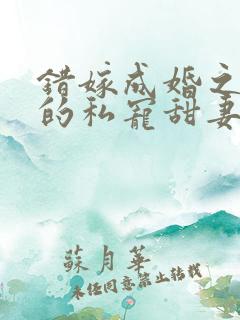 錯嫁成婚之
的私寵甜妻
蘇月華
未經同意禁止轉載